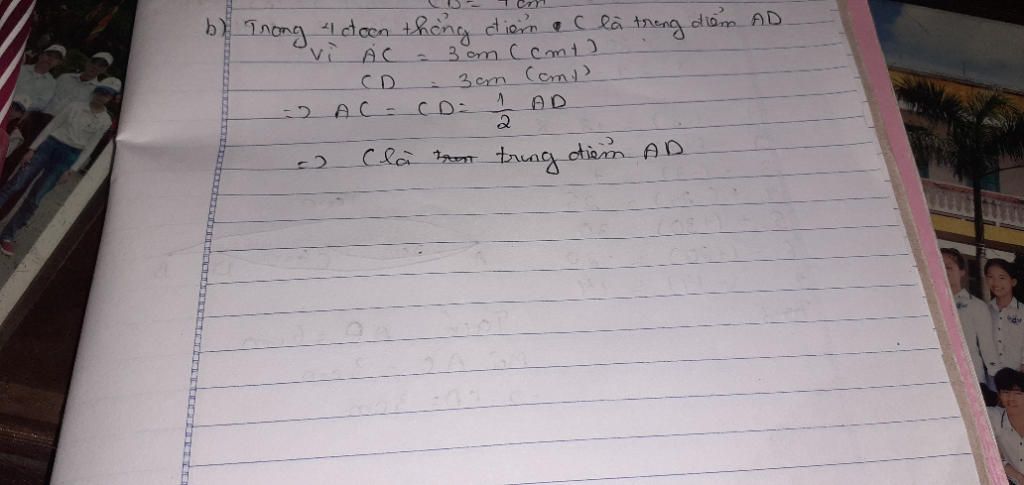 b) Trong 4 đoạn thẳng điểm C là trung điểm AD
Vì AC = 3cm (cmt)
CD = 3cm (cmt)
=> AC = CD = 1/2 AD
=> C là trung điểm AD